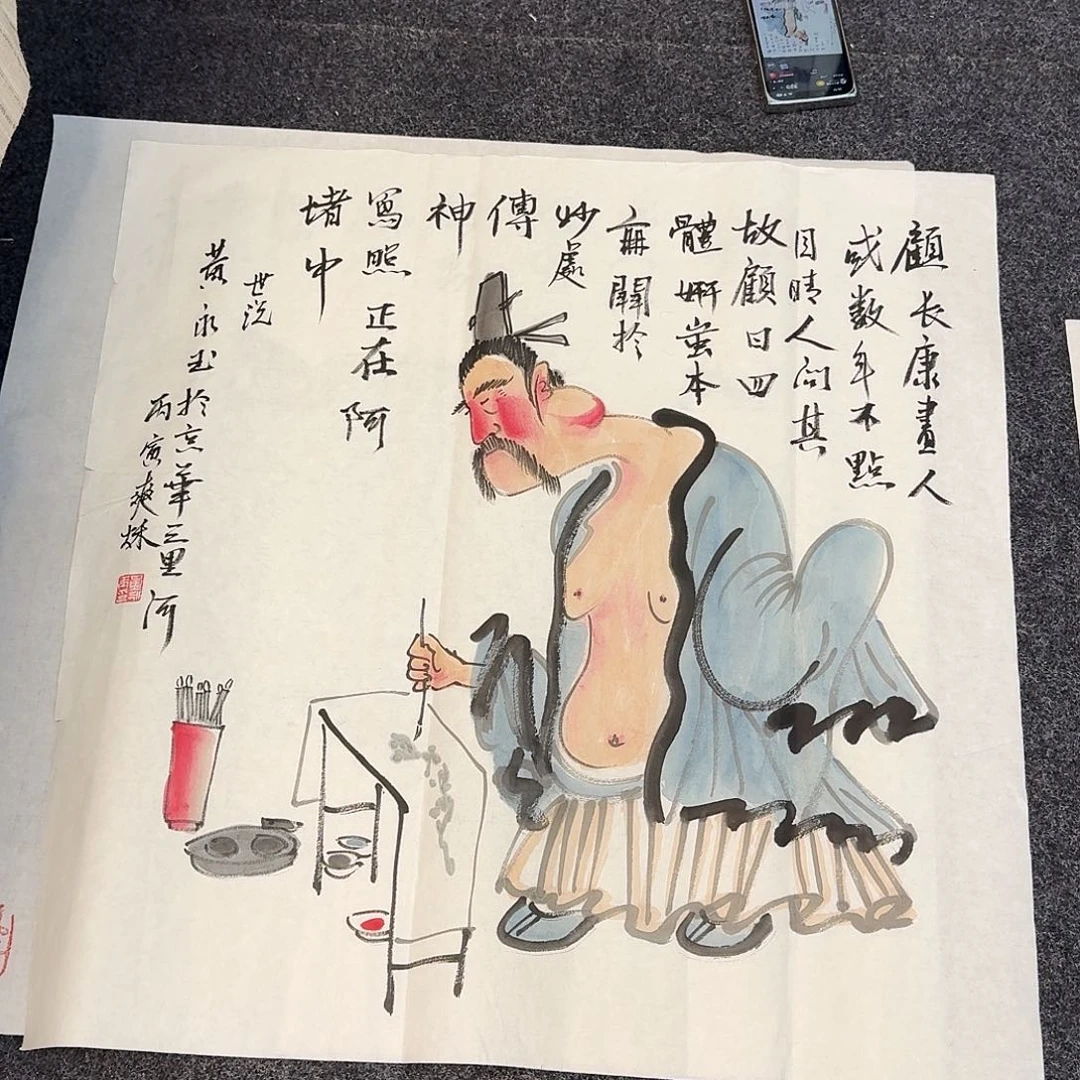 顧长康畫人
或数年不點
目睛人问其
故顧曰四
體妍蚩本
無關於
妙處
傳
神
寫照正在阿
堵中
世说
黄永玉於京華三里河
丙寅